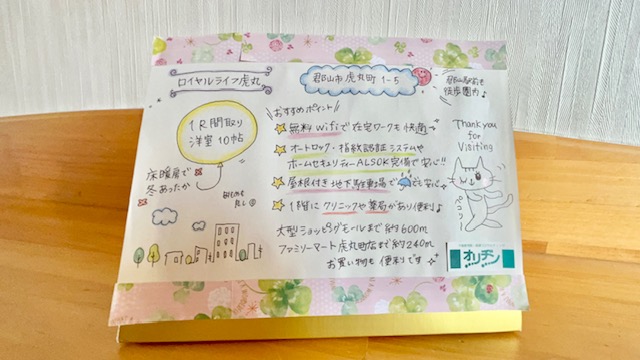 ロイヤルライフ虎丸
郡山市虎丸町1-5
郡山駅前も
徒歩圏内♪
1R間取り
洋室10帖
床暖房で
冬あったか
おすすめポイント!!
無料wifiで在宅ワークも快適
オートロック・指紋認証システムや
ホームセキュリティーALSOK完備で安心!!
屋根付き地下駐車場で☂でも安心
1階にクリニックや薬局があり便利♪
大型ショッピングモールまで約600m
ファミリーマート虎丸町店まで約240m
お買い物も便利です
Thank you
for
Visiting
ペコリ
オリチン